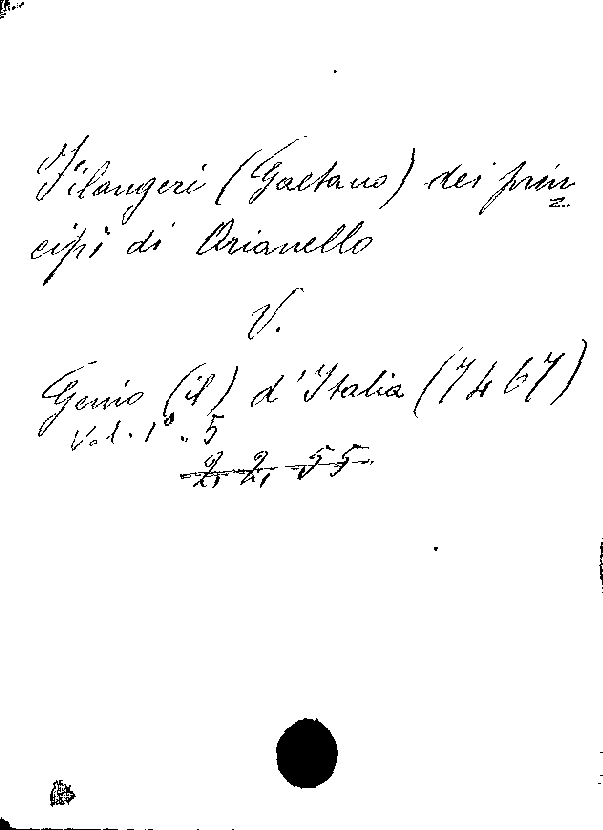 Filangeri (Gaetano) dei prin=
cipi di Arianello
V.
Genio (il) d'Italia (7467)
Vol. 1° " 5
2. 2. 55